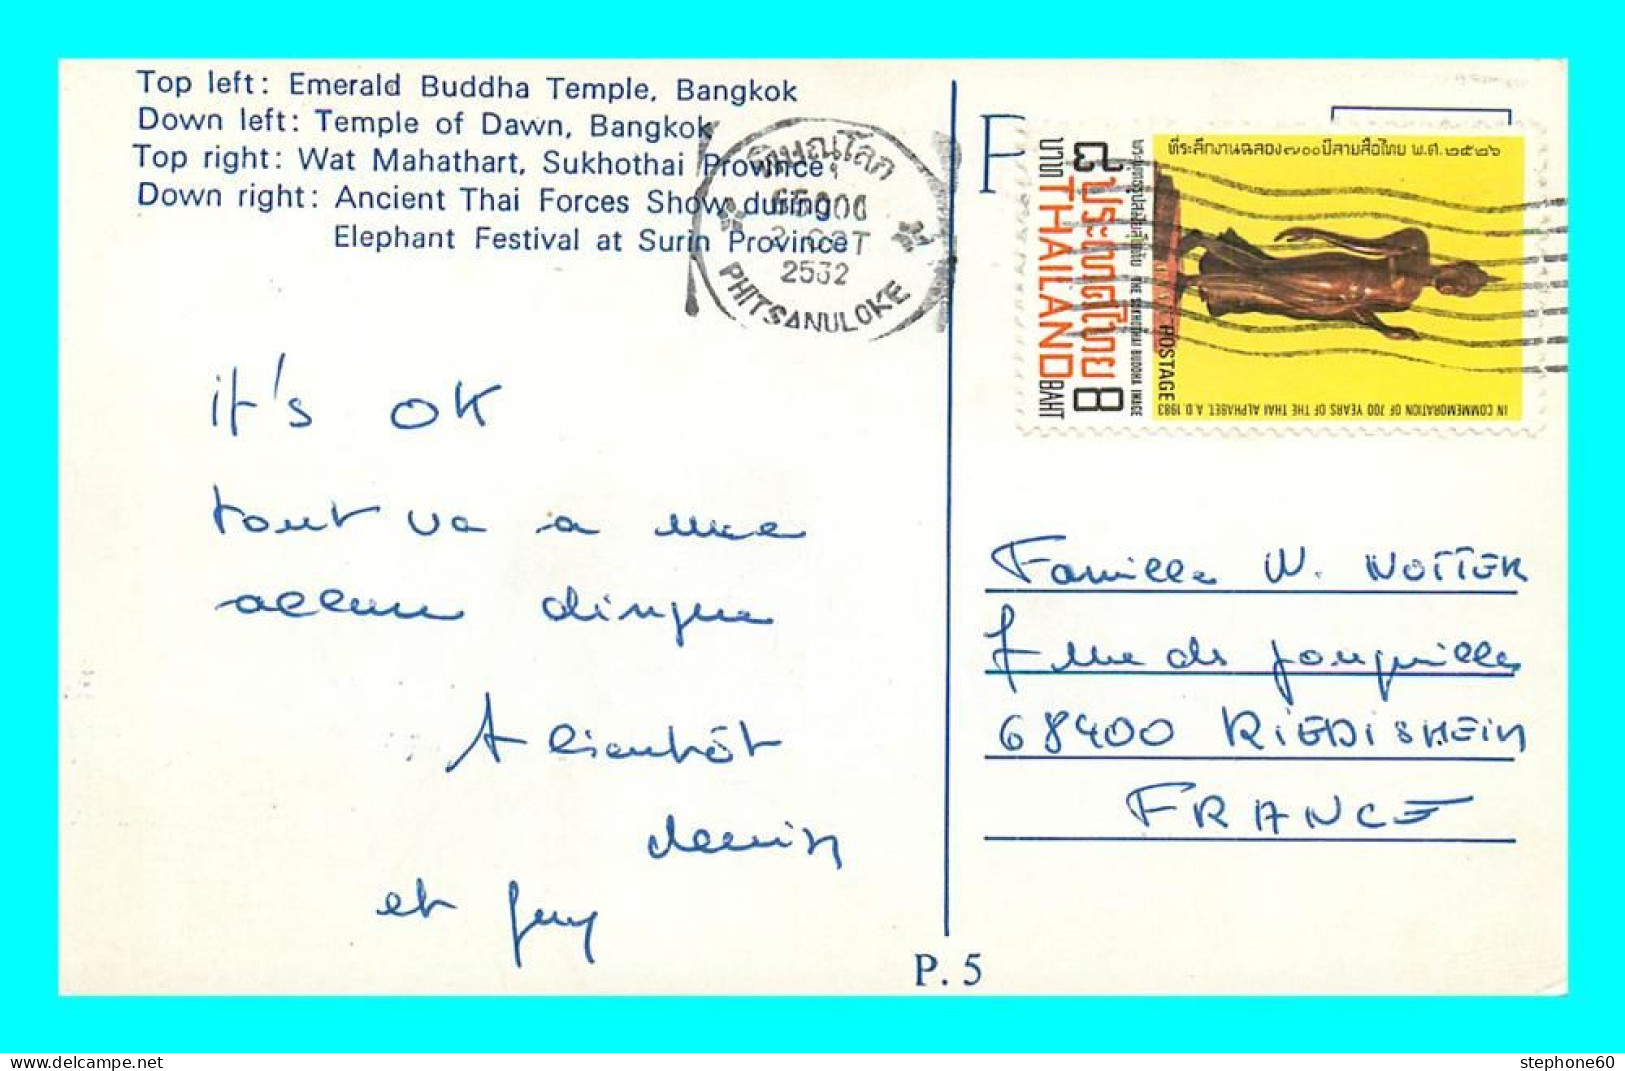 Top left: Emerald Buddha Temple, Bangkok
Down left: Temple of Dawn, Bangkok
Top right: Wat Mahathart, Sukhothai Province
Down right: Ancient Thai Forces Show during
Elephant Festival at Surin Province
พิษณุโลก
65000
OCT
2532
PHITSANULOKE
F
ที่ระลึกงานฉลอง๗๐๐ปีลายสือไทย พ.ศ.๒๕๒๖
๘ บาท
ประเทศไทย
THAILAND
8 BAHT
THE SUKHOTHAI BUDDHA IMAGE
POSTAGE
IN COMMEMORATION OF 700 YEARS OF THE THAI ALPHABET, A.D. 1983
it's OK
tout va a une
allure dingue
A bientôt
et guy
Famille W. NOTTER
7 rue des jonquilles
68400 RIEDISHEIM
FRANCE
P. 5
stephone60